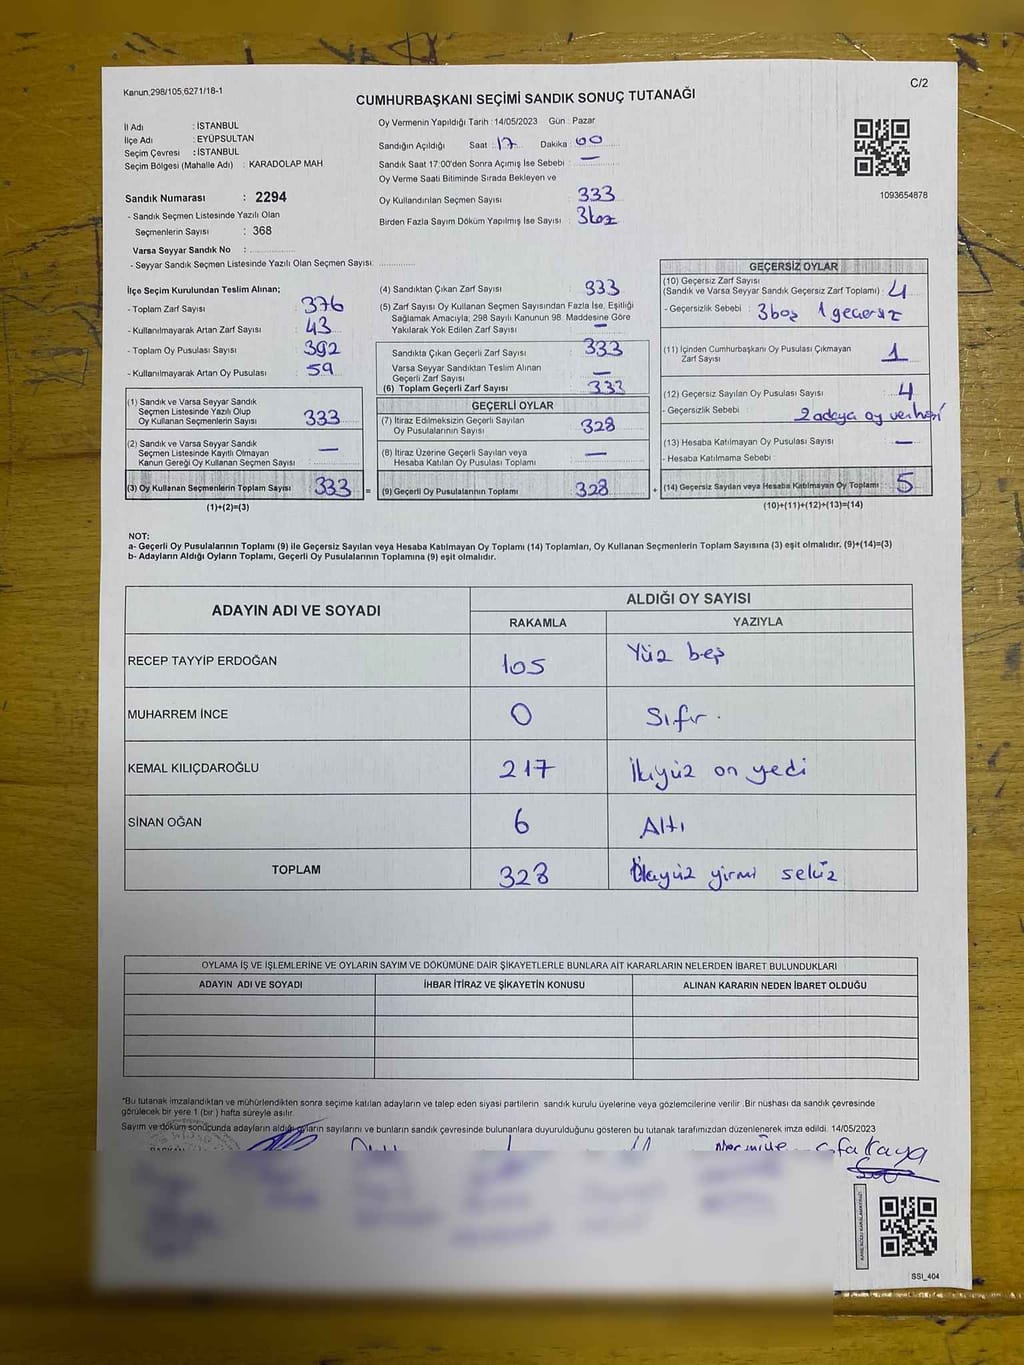 Kanun.298/105,6271/18-1
C/2
CUMHURBAŞKANI SEÇİMİ SANDIK SONUÇ TUTANAĞI
İl Adı : İSTANBUL
İlçe Adı : EYÜPSULTAN
Seçim Çevresi : İSTANBUL
Seçim Bölgesi (Mahalle Adı) : KARADOLAP MAH
Sandık Numarası : 2294
- Sandık Seçmen Listesinde Yazılı Olan
Seçmenlerin Sayısı : 368
Varsa Seyyar Sandık No :
- Seyyar Sandık Seçmen Listesinde Yazılı Olan Seçmen Sayısı:
Oy Vermenin Yapıldığı Tarih : 14/05/2023 Gün : Pazar
Sandığın Açıldığı Saat : 17 Dakika : 00
Sandık Saat 17:00'den Sonra Açımış İse Sebebi : —
Oy Verme Saati Bitiminde Sırada Bekleyen ve
Oy Kullandırılan Seçmen Sayısı : 333
Birden Fazla Sayım Döküm Yapılmış İse Sayısı : 3 boz
1093654878
İlçe Seçim Kurulundan Teslim Alınan;
- Toplam Zarf Sayısı : 376
- Kullanılmayarak Artan Zarf Sayısı : 43
- Toplam Oy Pusulası Sayısı : 392
- Kullanılmayarak Artan Oy Pusulası : 59
(1) Sandık ve Varsa Seyyar Sandık
Seçmen Listesinde Yazılı Olup
Oy Kullanan Seçmenlerin Sayısı : 333
(2) Sandık ve Varsa Seyyar Sandık
Seçmen Listesinde Kayıtlı Olmayan
Kanun Gereği Oy Kullanan Seçmen Sayısı : —
(3) Oy Kullanan Seçmenlerin Toplam Sayısı : 333 =
(1)+(2)=(3)
(4) Sandıktan Çıkan Zarf Sayısı : 333
(5) Zarf Sayısı Oy Kullanan Seçmen Sayısından Fazla İse, Eşitliği
Sağlamak Amacıyla; 298 Sayılı Kanunun 98. Maddesine Göre
Yakılarak Yok Edilen Zarf Sayısı : —
Sandıkta Çıkan Geçerli Zarf Sayısı : 333
Varsa Seyyar Sandıktan Teslim Alınan
Geçerli Zarf Sayısı : —
(6) Toplam Geçerli Zarf Sayısı : 333
GEÇERLİ OYLAR
(7) İtiraz Edilmeksizin Geçerli Sayılan
Oy Pusulalarının Sayısı : 328
(8) İtiraz Üzerine Geçerli Sayılan veya
Hesaba Katılan Oy Pusulası Toplamı : —
(9) Geçerli Oy Pusulalarının Toplamı : 328 +
GEÇERSİZ OYLAR
(10) Geçersiz Zarf Sayısı
(Sandık ve Varsa Seyyar Sandık Geçersiz Zarf Toplamı) : 4
- Geçersizlik Sebebi : 3 boş 1 geçersiz
(11) İçinden Cumhurbaşkanı Oy Pusulası Çıkmayan
Zarf Sayısı : 1
(12) Geçersiz Sayılan Oy Pusulası Sayısı : 4
- Geçersizlik Sebebi : 2 adaya oy verilmesi
(13) Hesaba Katılmayan Oy Pusulası Sayısı : —
- Hesaba Katılmama Sebebi :
(14) Geçersiz Sayılan veya Hesaba Katılmayan Oy Toplamı : 5
(10)+(11)+(12)+(13)=(14)
NOT:
a- Geçerli Oy Pusulalarının Toplamı (9) ile Geçersiz Sayılan veya Hesaba Katılmayan Oy Toplamı (14) Toplamları, Oy Kullanan Seçmenlerin Toplam Sayısına (3) eşit olmalıdır. (9)+(14)=(3)
b- Adayların Aldığı Oyların Toplamı, Geçerli Oy Pusulalarının Toplamına (9) eşit olmalıdır.
ADAYIN ADI VE SOYADI ALDIĞI OY SAYISI
RAKAMLA YAZIYLA
RECEP TAYYİP ERDOĞAN 105 Yüz beş
MUHARREM İNCE 0 Sıfır.
KEMAL KILIÇDAROĞLU 217 İkiyüz on yedi
SİNAN OĞAN 6 Altı
TOPLAM 328 yirmi sekiz
OYLAMA İŞ VE İŞLEMLERİNE VE OYLARIN SAYIM VE DÖKÜMÜNE DAİR ŞİKAYETLERLE BUNLARA AİT KARARLARIN NELERDEN İBARET BULUNDUKLARI
ADAYIN ADI VE SOYADI İHBAR İTİRAZ VE ŞİKAYETİN KONUSU ALINAN KARARIN NEDEN İBARET OLDUĞU
"Bu tutanak imzalandıktan ve mühürlendikten sonra seçime katılan adayların ve talep eden siyasi partilerin sandık kurulu üyelerine veya gözlemcilerine verilir .Bir nüshası da sandık çevresinde
görülecek bir yere 1 (bir ) hafta süreyle asılır.
Sayım ve döküm sonucunda adayların aldığı oyların sayılarını ve bunların sandık çevresinde bulunanlara duyurulduğunu gösteren bu tutanak tarafımızdan düzenlenerek imza edildi. 14/05/2023
SSI_404